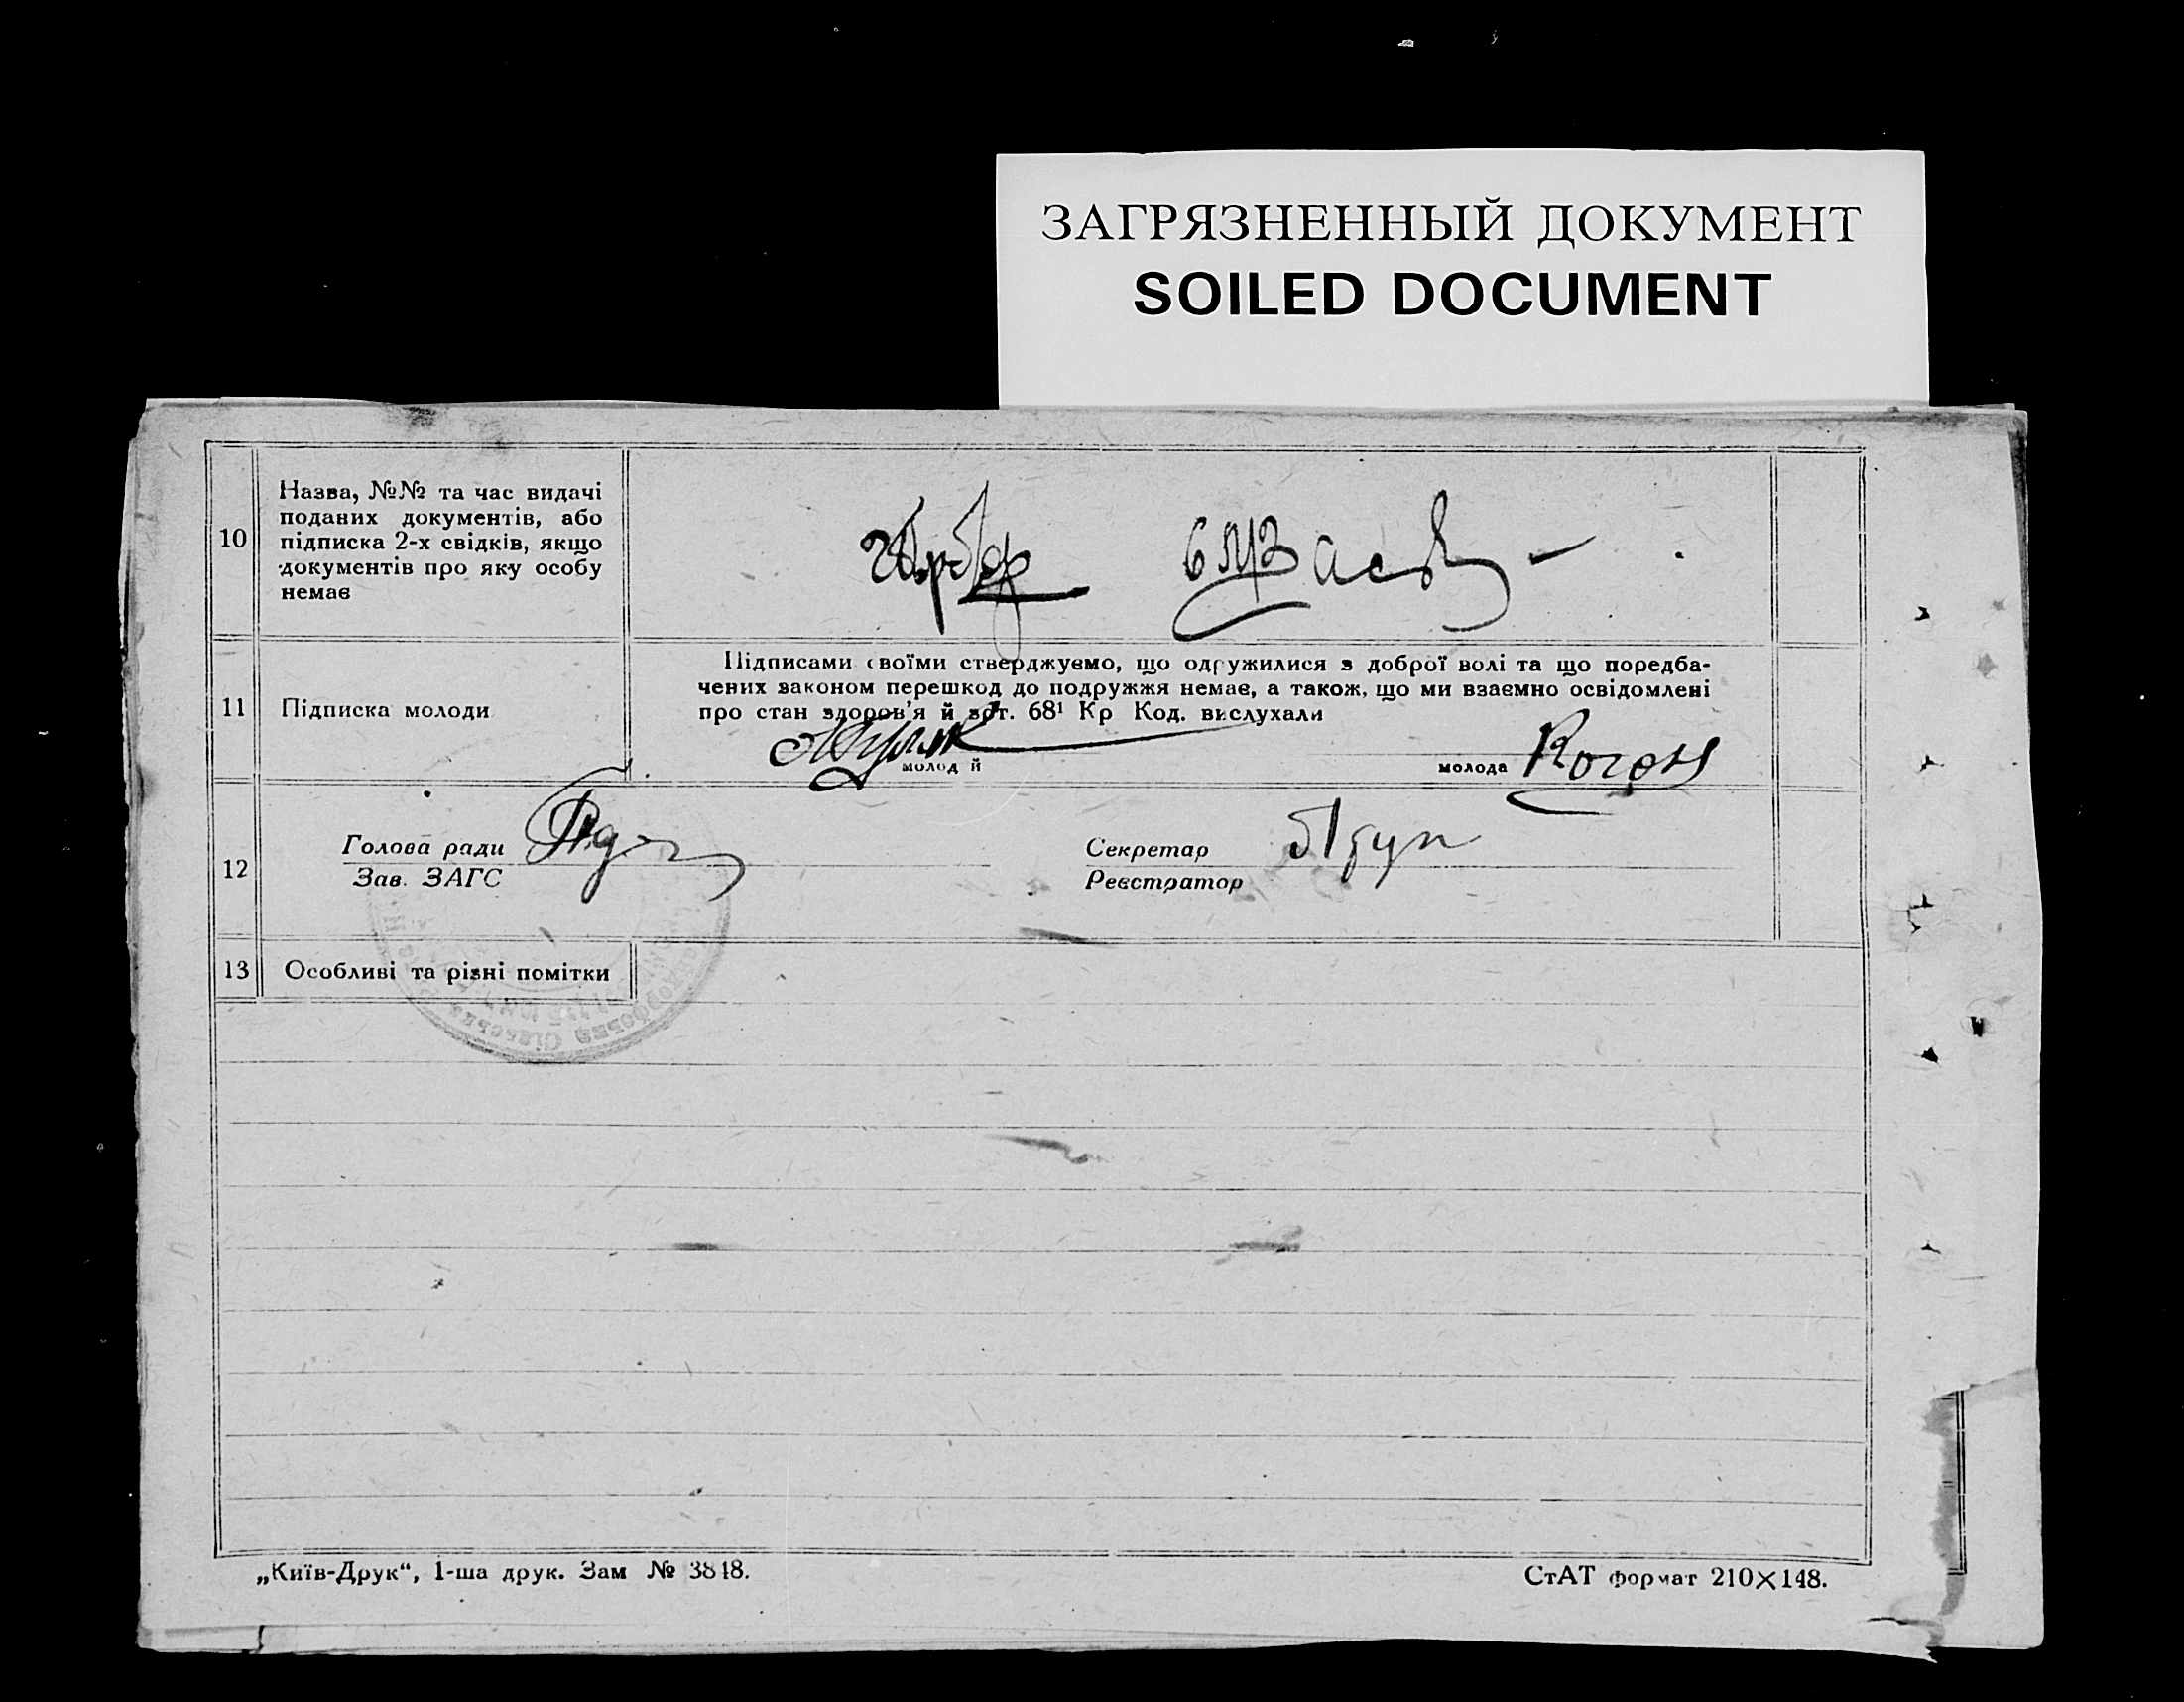 ЗАГРЯЗНЕННЫЙ ДОКУМЕНТ
SOILED DOCUMENT
10
Назва, №№ та час видачі
поданих документів, або
підписка 2-х свідків, якщо
документів про яку особу
немає
11
Підписка молоди
Підписами своїми стверджуємо, що одружилися з доброї волі та що поредба-
чених законом перешкод до подружжя немає, а також, що ми взаємно освідомлені
про стан здоров'я й арт. 68¹ Кр Код. вислухали
молод й
молода Коген
12
Голова ради
Зав. ЗАГС
Секретар
Реєстратор
13
Особливі та різні помітки
„Київ-Друк“, 1-ша друк. Зам № 3848.
СтАТ формат 210×148.